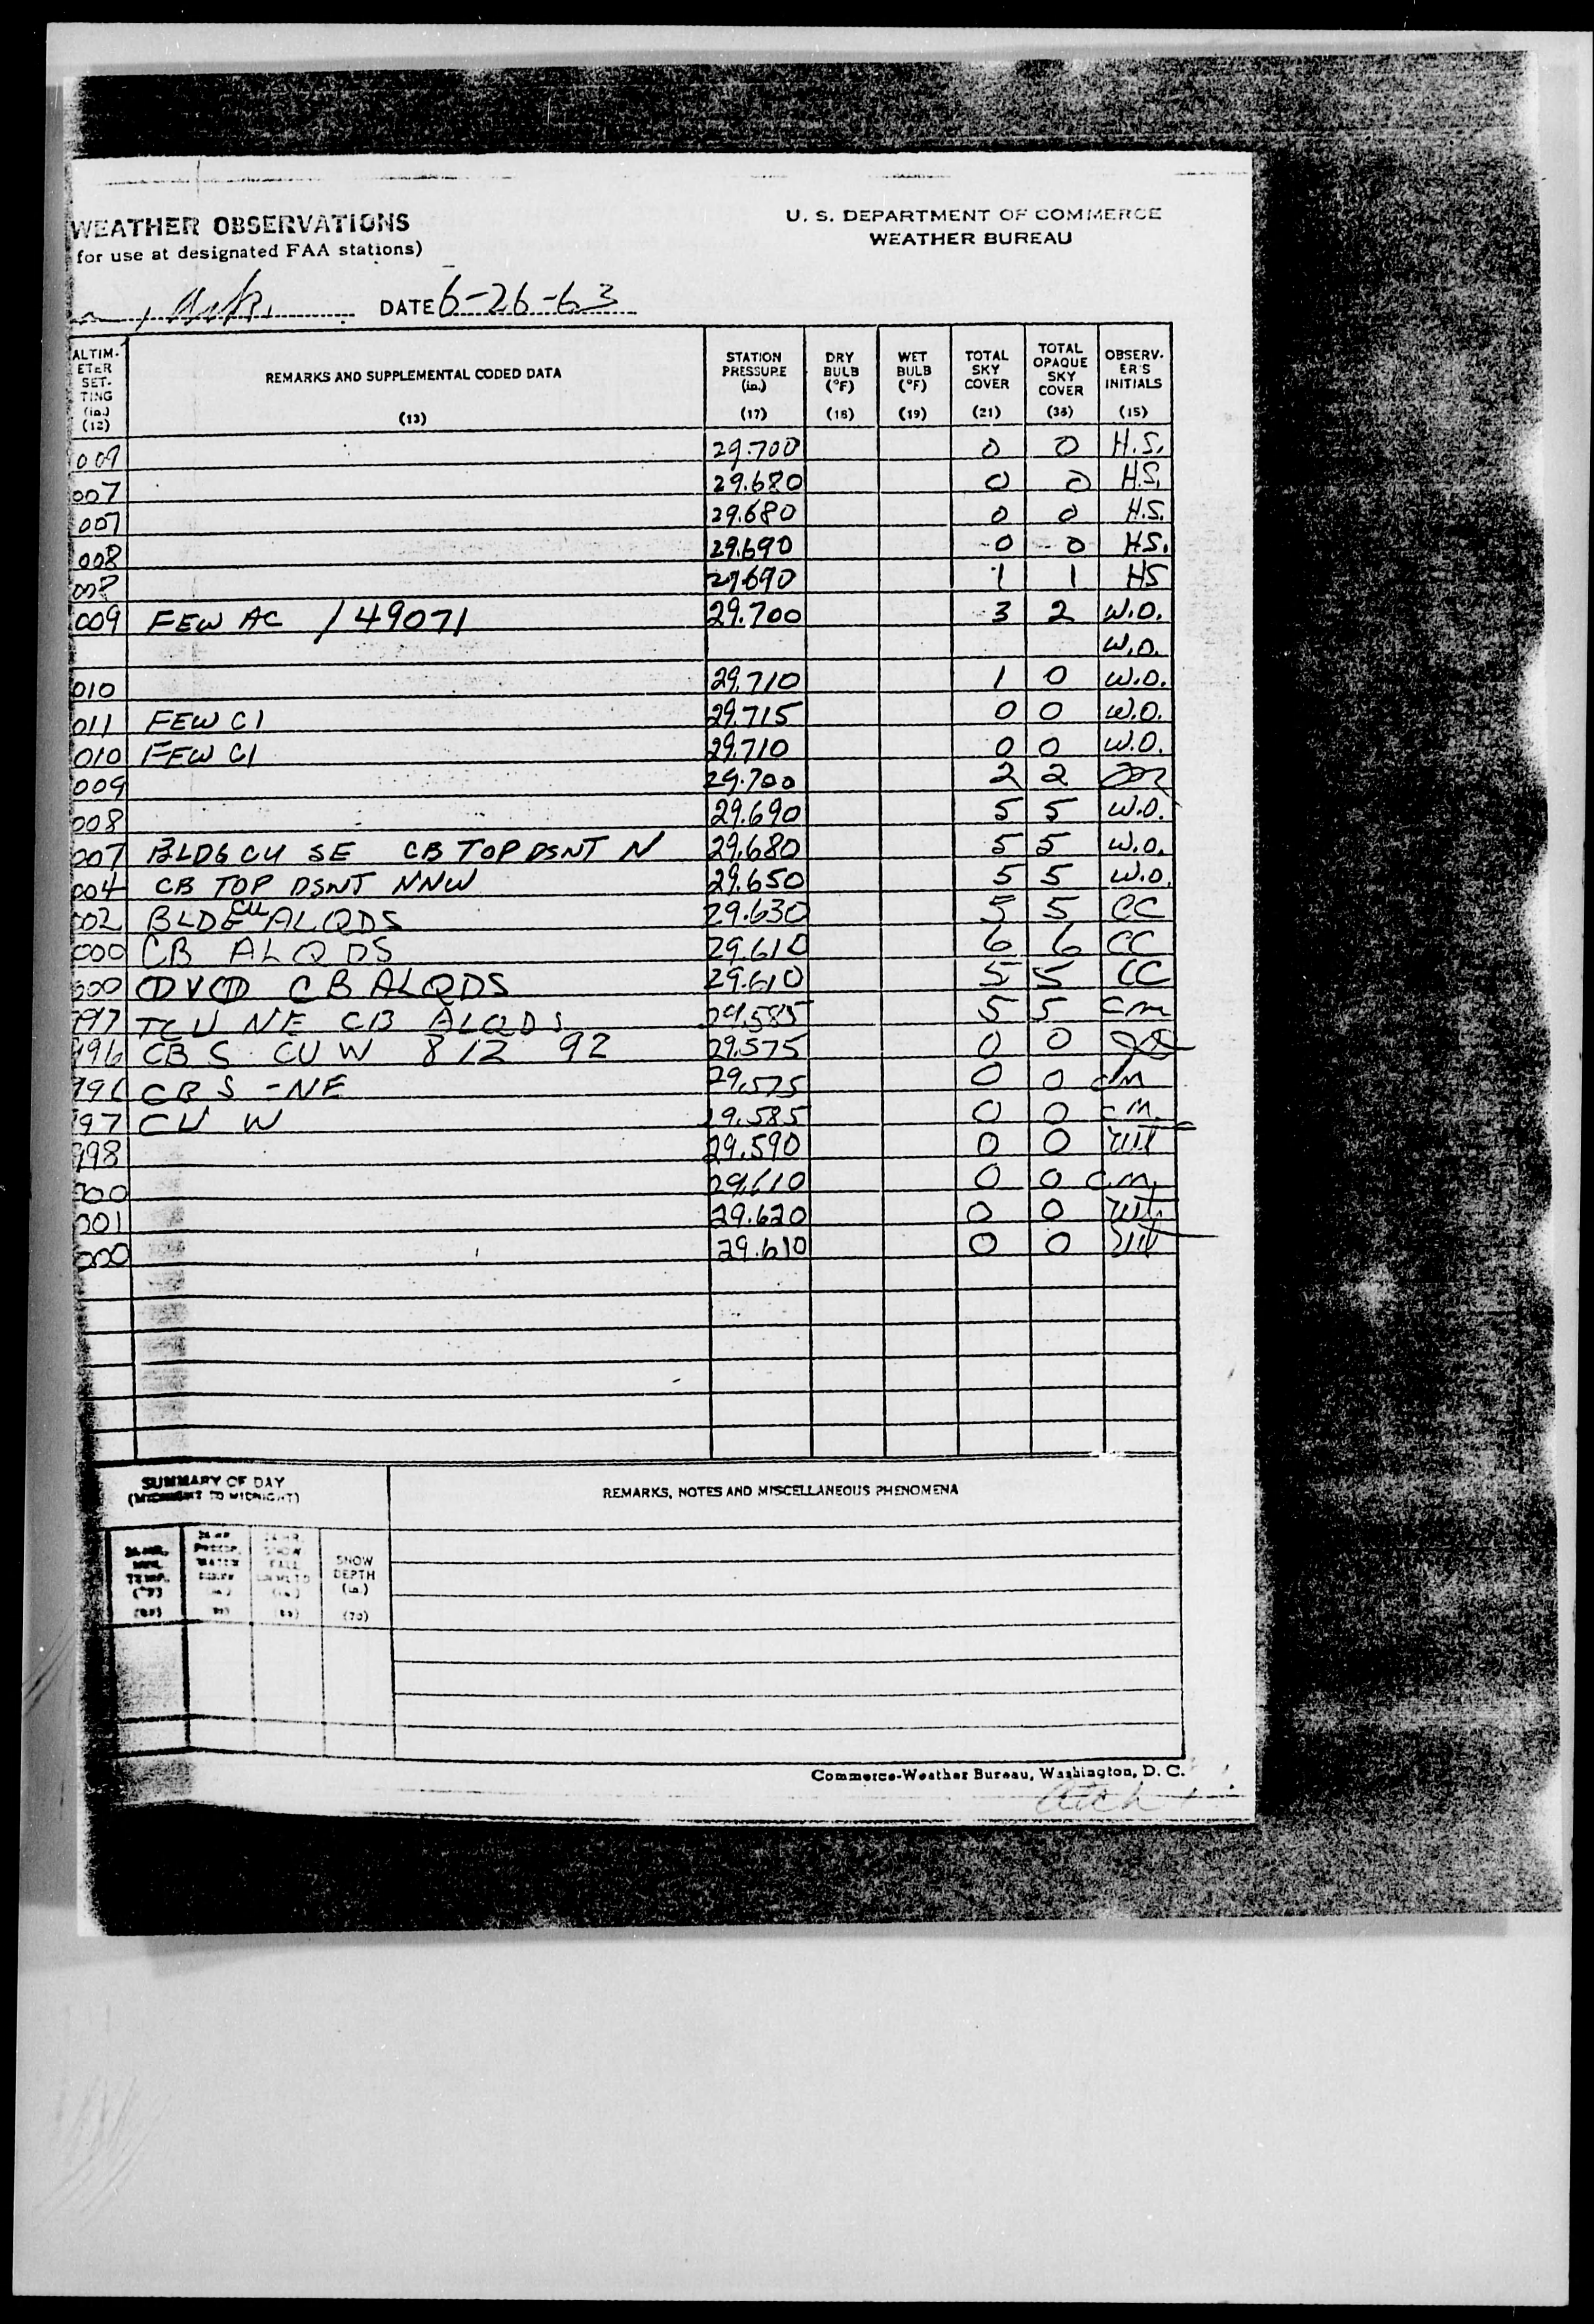 WEATHER OBSERVATIONS
U. S. DEPARTMENT OF COMMERCE
for use at designated FAA stations)
WEATHER BUREAU
, Ark. DATE 6-26-63
ALTIM-ETER SET-TING (in.) (12) REMARKS AND SUPPLEMENTAL CODED DATA (13) STATION PRESSURE (in.) (17) DRY BULB (°F) (18) WET BULB (°F) (19) TOTAL SKY COVER (21) TOTAL OPAQUE SKY COVER (38) OBSERV-ER'S INITIALS (15)
009 29.700 0 0 H.S.
007 29.680 0 0 H.S.
007 29.680 0 0 H.S.
008 29.690 0 0 HS.
008 29.690 1 1 HS
009 FEW AC /49071 29.700 3 2 W.O.
W.O.
010 29.710 1 0 W.O.
011 FEW CI 29.715 0 0 W.O.
010 FEW CI 29.710 0 0 W.O.
009 29.700 2 2
008 29.690 5 5 W.O.
007 BLDG CU SE CB TOP DSNT N 29.680 5 5 W.O.
004 CB TOP DSNT NNW 29.650 5 5 W.O.
002 BLDG CU ALQDS 29.630 5 5 CC
000 CB ALQDS 29.610 6 6 CC
000 ⦶V⦶ CB ALQDS 29.610 5 5 CC
997 TCU NE CB ALQDS 29.585 5 5 cm
996 CB S CU W 812 92 29.575 0 0
996 CB S-NE 29.575 0 0 cm
997 CU W 29.585 0 0 cm.
998 29.590 0 0
000 29.610 0 0 cm.
001 29.620 0 0
000 29.610 0 0
SUMMARY OF DAY
(MIDNIGHT TO MIDNIGHT)
REMARKS, NOTES AND MISCELLANEOUS PHENOMENA
SNOW DEPTH (in.) (70)
Commerce-Weather Bureau, Washington, D. C.